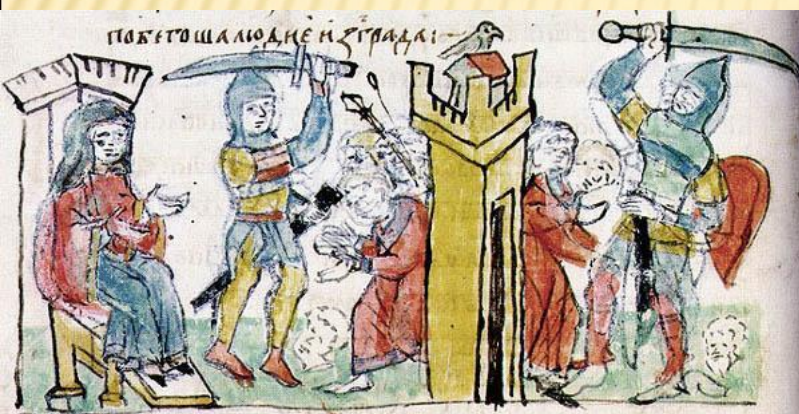 побегоша людиє и з̾града: